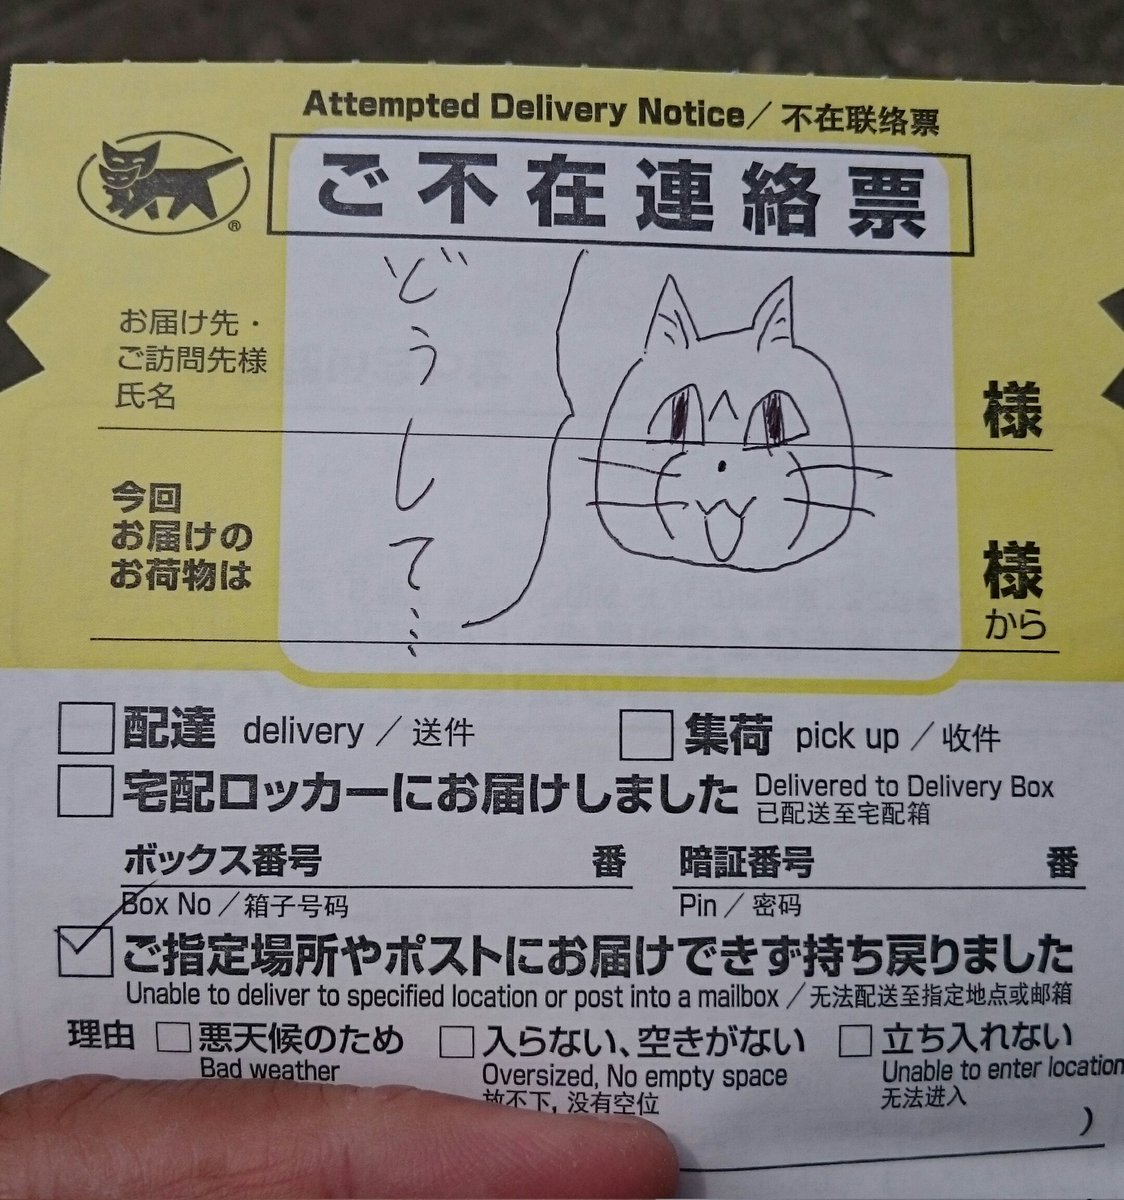 Attempted Delivery Notice／不在联络票
ご不在連絡票
®
どうして…
お届け先・
ご訪問先様
氏名
様
今回
お届けの
お荷物は
様
から
配達 delivery／送件
集荷 pick up／收件
宅配ロッカーにお届けしました Delivered to Delivery Box
已配送至宅配箱
ボックス番号 番
暗証番号 番
Box No／箱子号码
Pin／密码
ご指定場所やポストにお届けできず持ち戻りました
Unable to deliver to specified location or post into a mailbox／无法配送至指定地点或邮箱
理由
悪天候のため
Bad weather
入らない、空きがない
Oversized, No empty space
放不下，没有空位
立ち入れない
Unable to enter location
无法进入
)